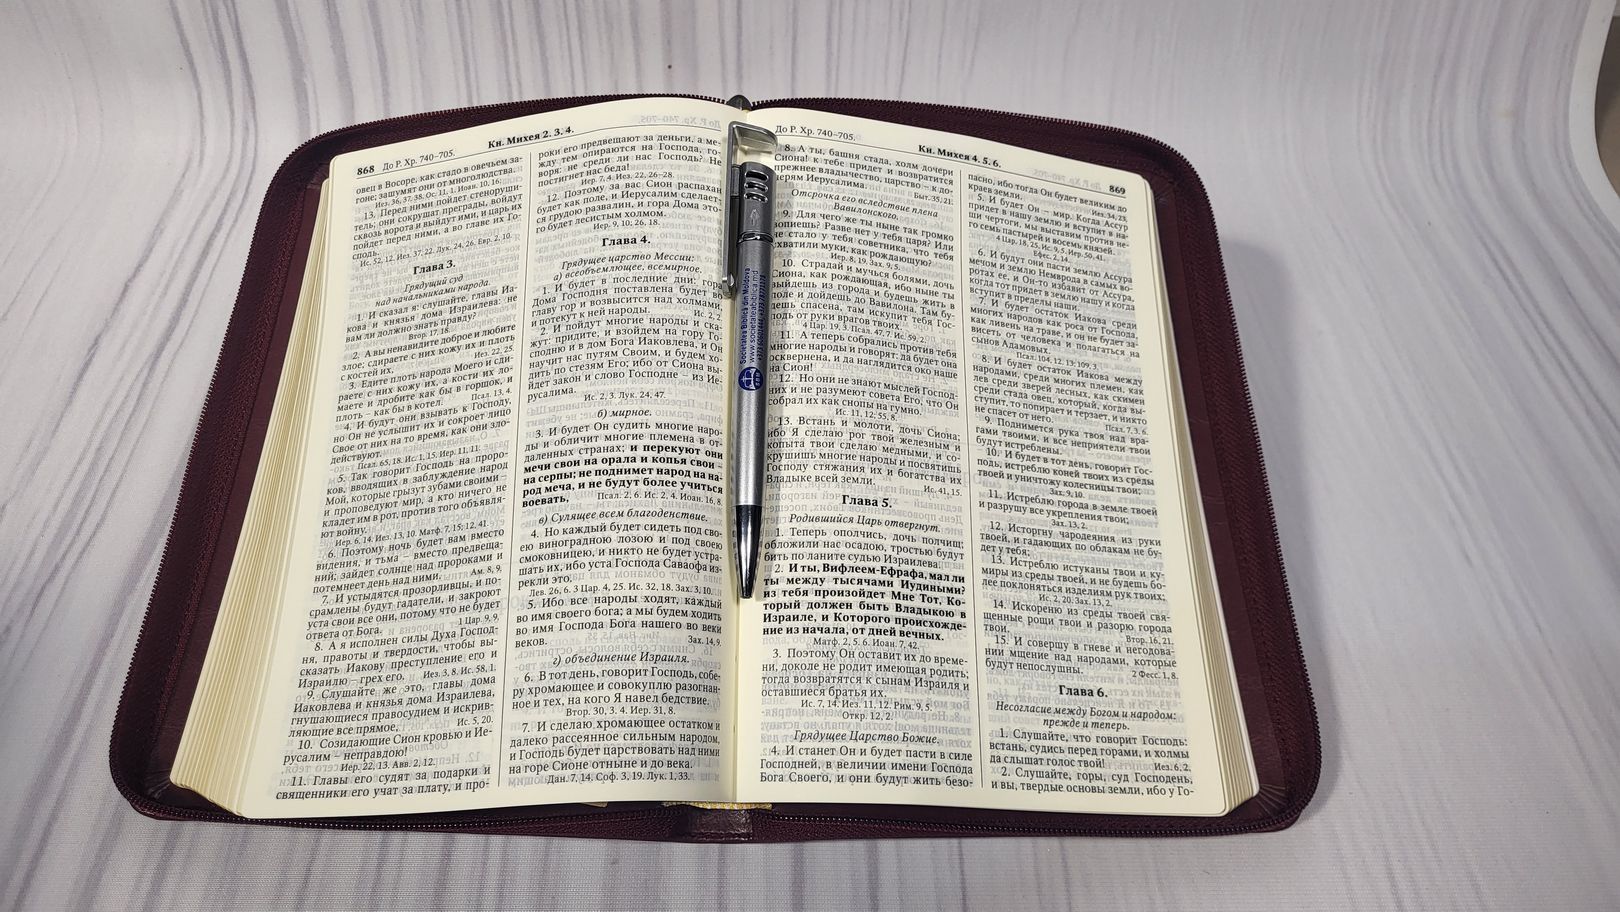 868 До Р. Хр. 740–705.
Кн. Михея 2. 3. 4.
овец в Восоре, как стадо в овечьем за-
гоне; зашумят они от многолюдства.
Иез. 36, 37, 38. Ос. 11, 1. Иоан. 10, 16.
13. Перед ними пойдет стеноруши-
тель; они сокрушат преграды, войдут
сквозь ворота и выйдут ими, и царь их
пойдет перед ними, а во главе их Го-
сподь.
Ис. 52, 12. Иез. 37, 22. Лук. 24, 26. Евр. 2, 10.
Глава 3.
Грядущий суд
над начальниками народа.
1. И сказал я: слушайте, главы Иа-
кова и князья дома Израилева: не
вам ли должно знать правду?
Втор. 17, 18.
2. А вы ненавидите доброе и любите
злое; сдираете с них кожу их и плоть
с костей их,
Иез. 22, 25.
3. Едите плоть народа Моего и сди-
раете с них кожу их, а кости их ло-
маете и дробите как бы в горшок, и
плоть – как бы в котел.
Псал. 13, 4.
4. И будут они взывать к Господу,
но Он не услышит их и сокроет лицо
Свое от них на то время, как они зло-
действуют.
Псал. 65, 18. Ис. 1, 15. Иер. 11, 11.
5. Так говорит Господь на проро-
ков, вводящих в заблуждение народ
Мой, которые грызут зубами своими –
и проповедуют мир, а кто ничего не
кладет им в рот, против того объявля-
ют войну.
Иер. 6, 14. Иез. 13, 10. Матф. 7, 15; 12, 41.
6. Поэтому ночь будет вам вместо
видения, и тьма – вместо предвеща-
ний; зайдет солнце над пророками и
потемнеет день над ними.
Ам. 8, 9.
7. И устыдятся прозорливцы, и по-
срамлены будут гадатели, и закроют
уста свои все они, потому что не будет
ответа от Бога.
1 Цар. 9, 9.
8. А я исполнен силы Духа Господ-
ня, правоты и твердости, чтобы вы-
сказать Иакову преступление его и
Израилю – грех его.
Иез. 3, 8. Ис. 58, 1.
9. Слушайте же это, главы дома
Иаковлева и князья дома Израилева,
гнушающиеся правосудием и искрив-
ляющие все прямое,
Ис. 5, 20.
10. Созидающие Сион кровью и Ие-
русалим – неправдою!
Иер. 22, 13. Авв. 2, 12.
11. Главы его судят за подарки и
священники его учат за плату, и про-
роки его предвещают за деньги, а ме-
жду тем опираются на Господа, го-
воря: не среди ли нас Господь? Не
постигнет нас беда!
Иер. 7, 4. Иез. 22, 26–28.
12. Поэтому за вас Сион распахан
будет как поле, и Иерусалим сделает-
ся грудою развалин, и гора Дома это-
го будет лесистым холмом.
Иер. 9, 10; 26, 18.
Глава 4.
Грядущее царство Мессии:
а) всеобъемлющее, всемирное.
1. И будет в последние дни: гора
Дома Господня поставлена будет во
главу гор и возвысится над холмами,
и потекут к ней народы.
Ис. 2, 2.
2. И пойдут многие народы и ска-
жут: придите, и взойдем на гору Го-
сподню и в дом Бога Иаковлева, и Он
научит нас путям Своим, и будем хо-
дить по стезям Его; ибо от Сиона вы-
йдет закон и слово Господне – из Ие-
русалима.
Ис. 2, 3. Лук. 24, 47.
б) мирное.
3. И будет Он судить многие наро-
ды и обличит многие племена в от-
даленных странах; и перекуют они
мечи свои на орала и копья свои –
на серпы; не поднимет народ на на-
род меча, и не будут более учиться
воевать.
Псал. 2, 6. Ис. 2, 4. Иоан. 16, 8.
в) Сулящее всем благоденствие.
4. Но каждый будет сидеть под сво-
ею виноградною лозою и под своею
смоковницею, и никто не будет устра-
шать их, ибо уста Господа Саваофа из-
рекли это.
Лев. 26, 6. 3 Цар. 4, 25. Ис. 32, 18. Зах. 3, 10.
5. Ибо все народы ходят, каждый
во имя своего бога; а мы будем ходить
во имя Господа Бога нашего во веки
веков.
Зах. 14, 9.
г) объединение Израиля.
6. В тот день, говорит Господь, собе-
ру хромающее и совокуплю разогнан-
ное и тех, на кого Я навел бедствие.
Втор. 30, 3. 4. Иер. 31, 8.
7. И сделаю хромающее остатком и
далеко рассеянное сильным народом,
и Господь будет царствовать над ними
на горе Сионе отныне и до века.
Дан. 7, 14. Соф. 3, 19. Лук. 1, 33.
Societatea Biblică din Moldova
www.societateabiblica.md
До Р. Хр. 740–705.
Кн. Михея 4. 5. 6.
869
8. А ты, башня стада, холм дочери
Сиона! к тебе придет и возвратится
прежнее владычество, царство – к до-
черям Иерусалима.
Быт. 35, 21.
Отсрочка его вследствие плена
Вавилонского.
9. Для чего же ты ныне так громко
вопиешь? Разве нет у тебя царя? Или
не стало у тебя советника, что тебя
схватили муки, как рождающую?
Иер. 8, 19. Зах. 9, 5.
10. Страдай и мучься болями, дочь
Сиона, как рождающая, ибо ныне ты
выйдешь из города и будешь жить в
поле и дойдешь до Вавилона. Там бу-
дешь спасена, там искупит тебя Гос-
подь от руки врагов твоих.
4 Цар. 19, 3. Псал. 47, 7. Ис. 59, 2.
11. А теперь собрались против тебя
многие народы и говорят: да будет она
осквернена, и да наглядится око наше
на Сион!
12. Но они не знают мыслей Господ-
них и не разумеют совета Его, что Он
собрал их как снопы на гумно.
Ис. 11, 12; 55, 8.
13. Встань и молоти, дочь Сиона;
ибо Я сделаю рог твой железным и
копыта твои сделаю медными, и со-
крушишь многие народы и посвятишь
Господу стяжания их и богатства их
Владыке всей земли.
Ис. 41, 15.
Глава 5.
Родившийся Царь отвергнут.
1. Теперь ополчись, дочь полчищ;
обложили нас осадою, тростью будут
бить по ланите судью Израилева.
2. И ты, Вифлеем-Ефрафа, мал ли
ты между тысячами Иудиными?
из тебя произойдет Мне Тот, Ко-
торый должен быть Владыкою в
Израиле, и Которого происхожде-
ние из начала, от дней вечных.
Матф. 2, 5. 6. Иоан. 7, 42.
3. Поэтому Он оставит их до време-
ни, доколе не родит имеющая родить;
тогда возвратятся к сынам Израиля и
оставшиеся братья их.
Ис. 7, 14. Иез. 11, 12. Рим. 9, 5.
Откр. 12, 2.
Грядущее Царство Божие.
4. И станет Он и будет пасти в силе
Господней, в величии имени Господа
Бога Своего, и они будут жить безо-
пасно, ибо тогда Он будет великим до
краев земли.
Иез. 34, 23.
5. И будет Он – мир. Когда Ассур
придет в нашу землю и вступит в на-
ши чертоги, мы выставим против не-
го семь пастырей и восемь князей.
4 Цар. 18, 25. Ис. 9, 5. Иер. 50, 41.
Ефес. 2, 14.
6. И будут они пасти землю Ассура
мечом и землю Немврода в самых во-
ротах ее, и Он-то избавит от Ассура,
когда тот придет в землю нашу и когда
вступит в пределы наши.
7. И будет остаток Иакова среди
многих народов как роса от Господа,
как ливень на траве, и он не будет за-
висеть от человека и полагаться на
сынов Адамовых.
Псал. 104, 12. 13; 109, 3.
8. И будет остаток Иакова между
народами, среди многих племен, как
лев среди зверей лесных, как скимен
среди стада овец, который, когда вы-
ступит, то попирает и терзает, и никто
не спасет от него.
Псал. 7, 3. 6.
9. Поднимется рука твоя над вра-
гами твоими, и все неприятели твои
будут истреблены.
10. И будет в тот день, говорит Гос-
подь, истреблю коней твоих из среды
твоей и уничтожу колесницы твои;
Зах. 9, 10.
11. Истреблю города в земле твоей
и разрушу все укрепления твои;
Зах. 13, 2.
12. Исторгну чародеяния из руки
твоей, и гадающих по облакам не бу-
дет у тебя;
13. Истреблю истуканы твои и ку-
миры из среды твоей, и не будешь бо-
лее поклоняться изделиям рук твоих;
Ис. 2, 20. Зах. 13, 2.
14. Искореню из среды твоей свя-
щенные рощи твои и разорю города
твои.
Втор. 16, 21.
15. И совершу в гневе и негодова-
нии мщение над народами, которые
будут непослушны.
2 Фесс. 1, 8.
Глава 6.
Несогласие между Богом и народом:
прежде и теперь.
1. Слушайте, что говорит Господь:
встань, судись перед горами, и холмы
да слышат голос твой!
Иез. 6, 2.
2. Слушайте, горы, суд Господень,
и вы, твердые основы земли, ибо у Го-